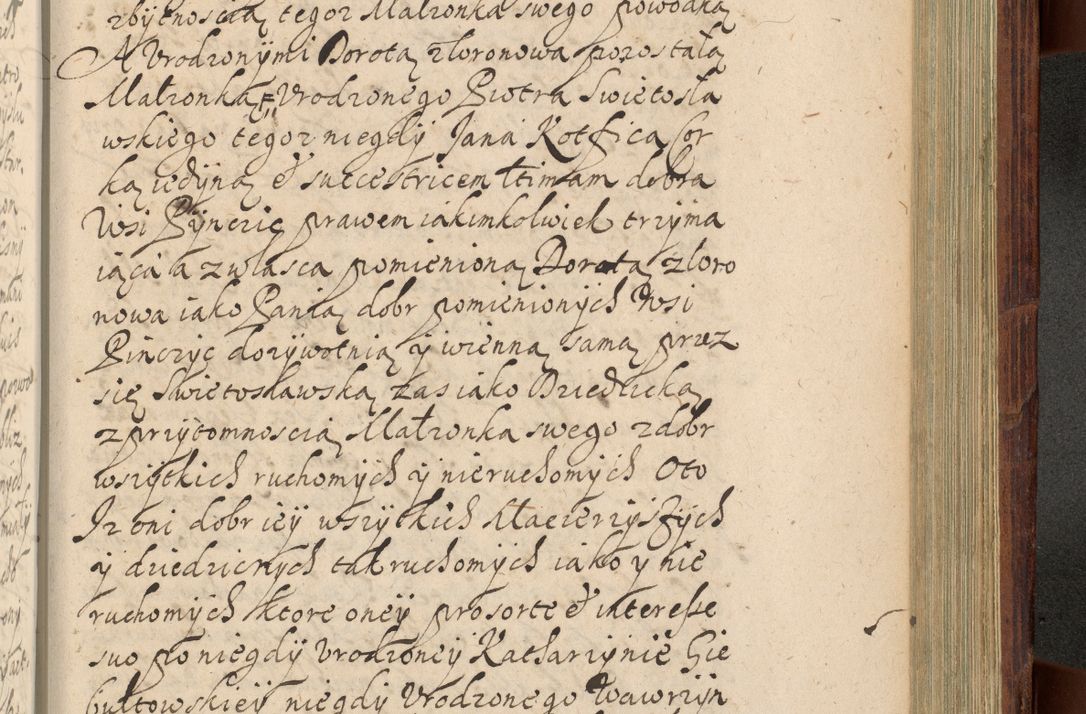 zbytnoscią tegoz Małzonka swego powodną
A Urodzonymi Dorotą zboronową pozostałą
Małzonką Urodzonego Piotra Swietosła
wskiego tegoz niegdy Jana Kotfica Cor
ką iedyną & successtricem dobra
Wsi Pynczic prawem iakimkolwiek trzyma
iącą a zwłasca pomienioną Dorotą zboro
nową iako Panią dobr pomienionych Wsi
Pinczyc dozywotnią y wienną samą przez
się Swietosławską zas iako Dziedlicką
z przytomnoscią Małzonka swego z dobr
wszytkich ruchomych y nieruchomych Oto
Iz oni dobr iey wszytkich Macierzystych
y dziedzicznych tak ruchomych iako y nie
ruchomych ktore oney pro sorte & interesse
suo po niegdy Urodzoney Katharzynie Gie
bułtowskiey niegdy Urodzonego Wawrzyn